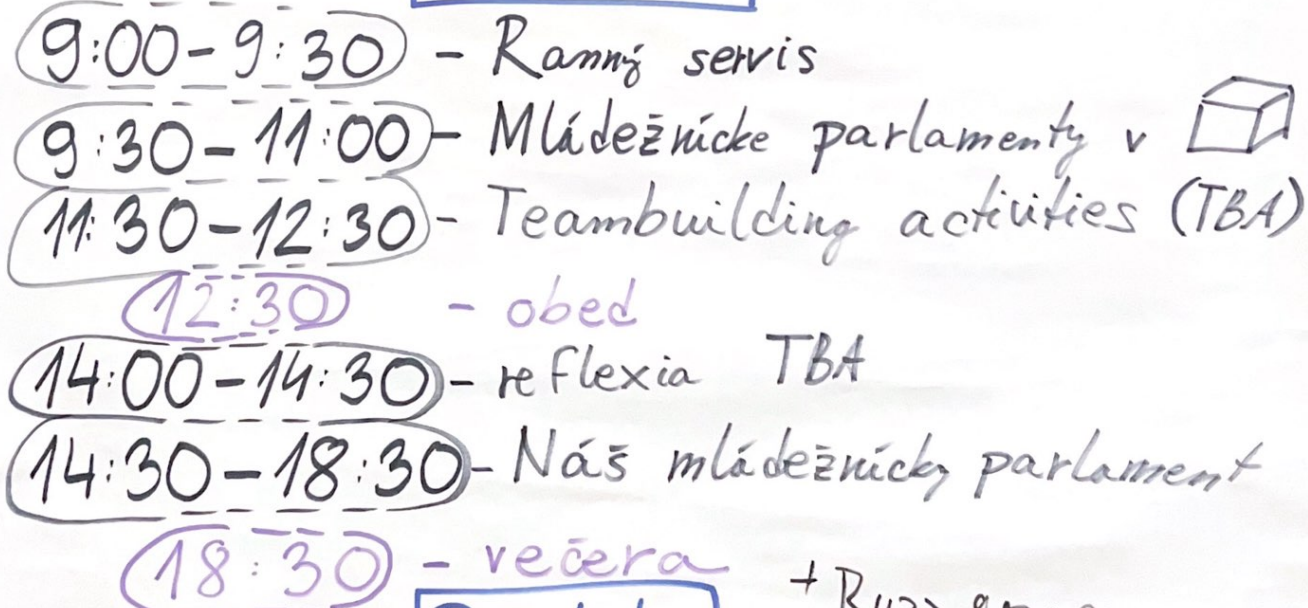 9:00-9:30 - Ranný servis
9:30-11:00 - Mládežnícke parlamenty v
11:30-12:30 - Teambuilding activities (TBA)
12:30 - obed
14:00-14:30 - reflexia TBA
14:30-18:30 - Náš mládežnícky parlament
18:30 - večera